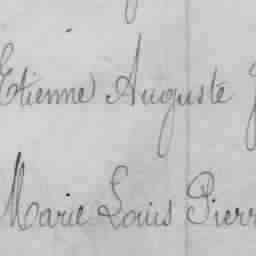 Etienne Auguste
Marie Louis Pierr